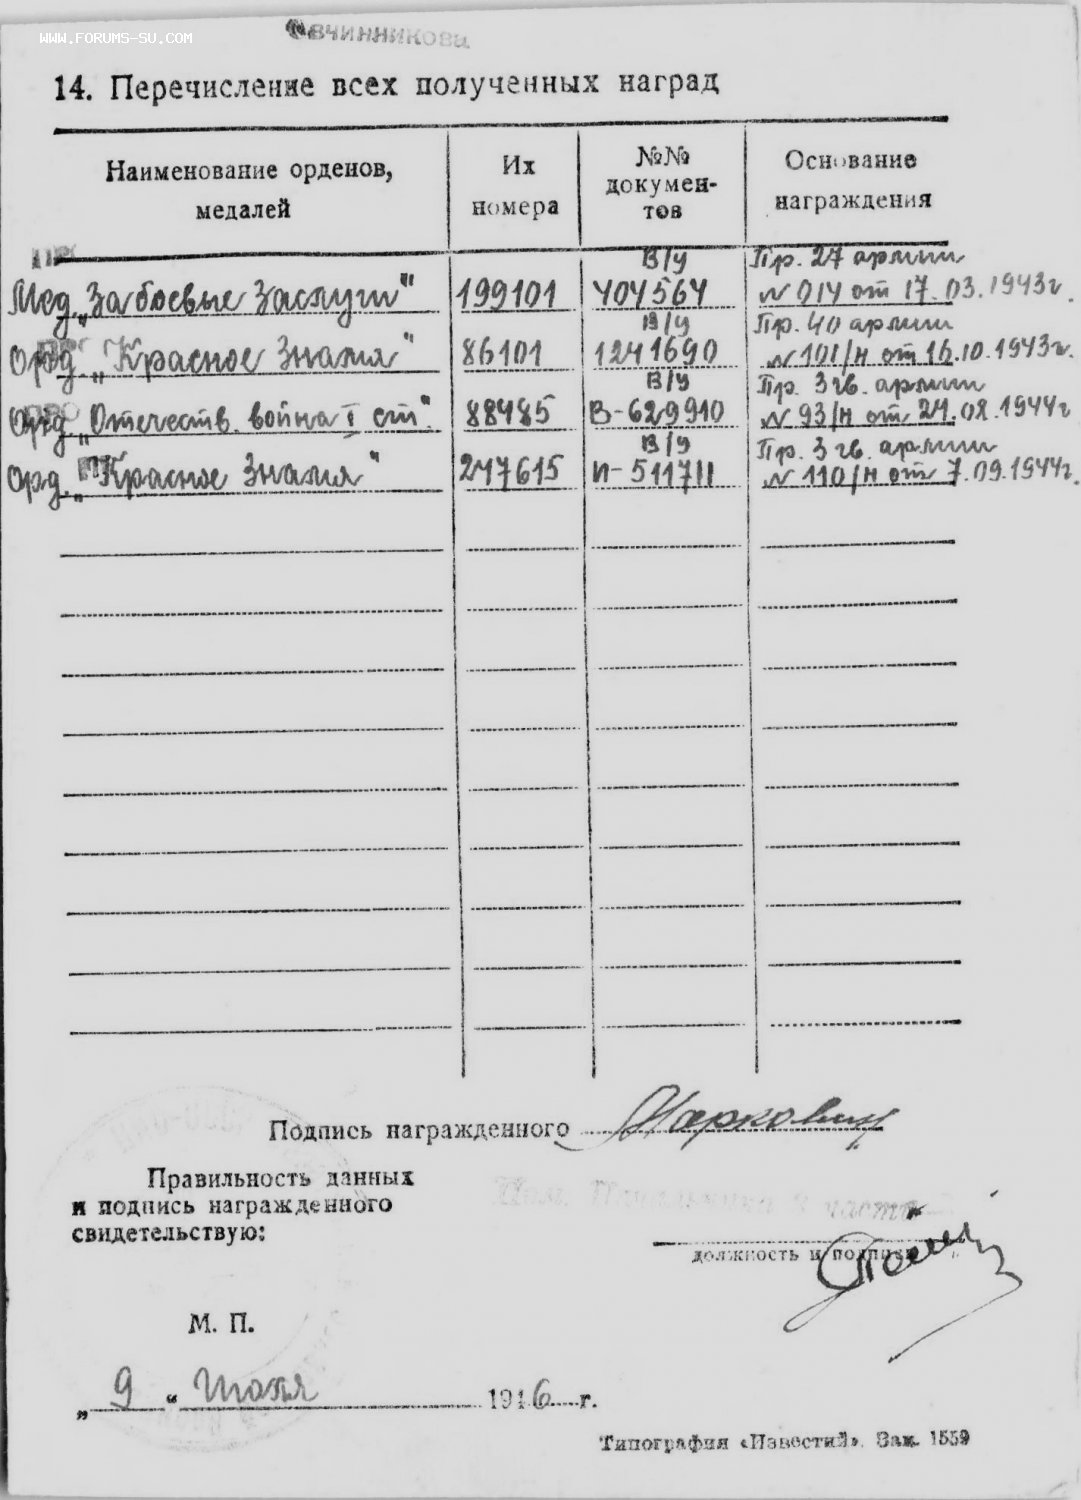 WWW.FORUMS-SU.COM
Овчинникова
14. Перечисление всех полученных наград
Наименование орденов, медалей
Их номера
№№ докумен-тов
Основание награждения
Мед. „За боевые заслуги" 199101 В/у 404564 Пр. 27 армии № 014 от 17.03.1943г.
Орд. „Красное Знамя" 86101 В/у 1241690 Пр. 40 армии № 101/н от 16.10.1943г.
Орд. „Отечеств. война I ст". 88485 В/у В-629910 Пр. 3 гв. армии № 93/н от 24.08.1944г
Орд. „Красное Знамя" 247615 В/у И-511711 Пр. 3 гв. армии № 110/н от 7.09.1944г.
Подпись награжденного
Правильность данных
и подпись награжденного
свидетельствую:
Пом. Начальника 2 части
должность и подпись
М. П.
„9“ Июля 1946 г.
Типография «Известий». Зак. 1559